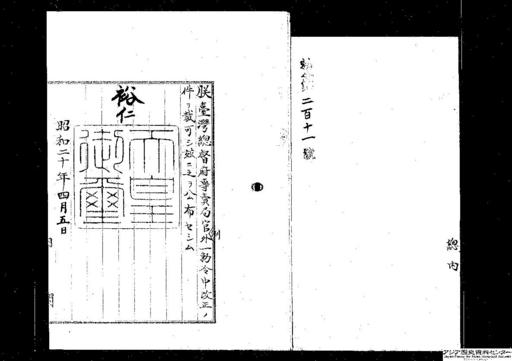 勅令第二百十一號
總内
朕臺灣總督府專賣局官制外一勅令中改正ノ
件ヲ裁可シ玆ニ之ヲ公布セシム
裕仁
天皇御璽
昭和二十年四月五日
アジア歴史資料センター